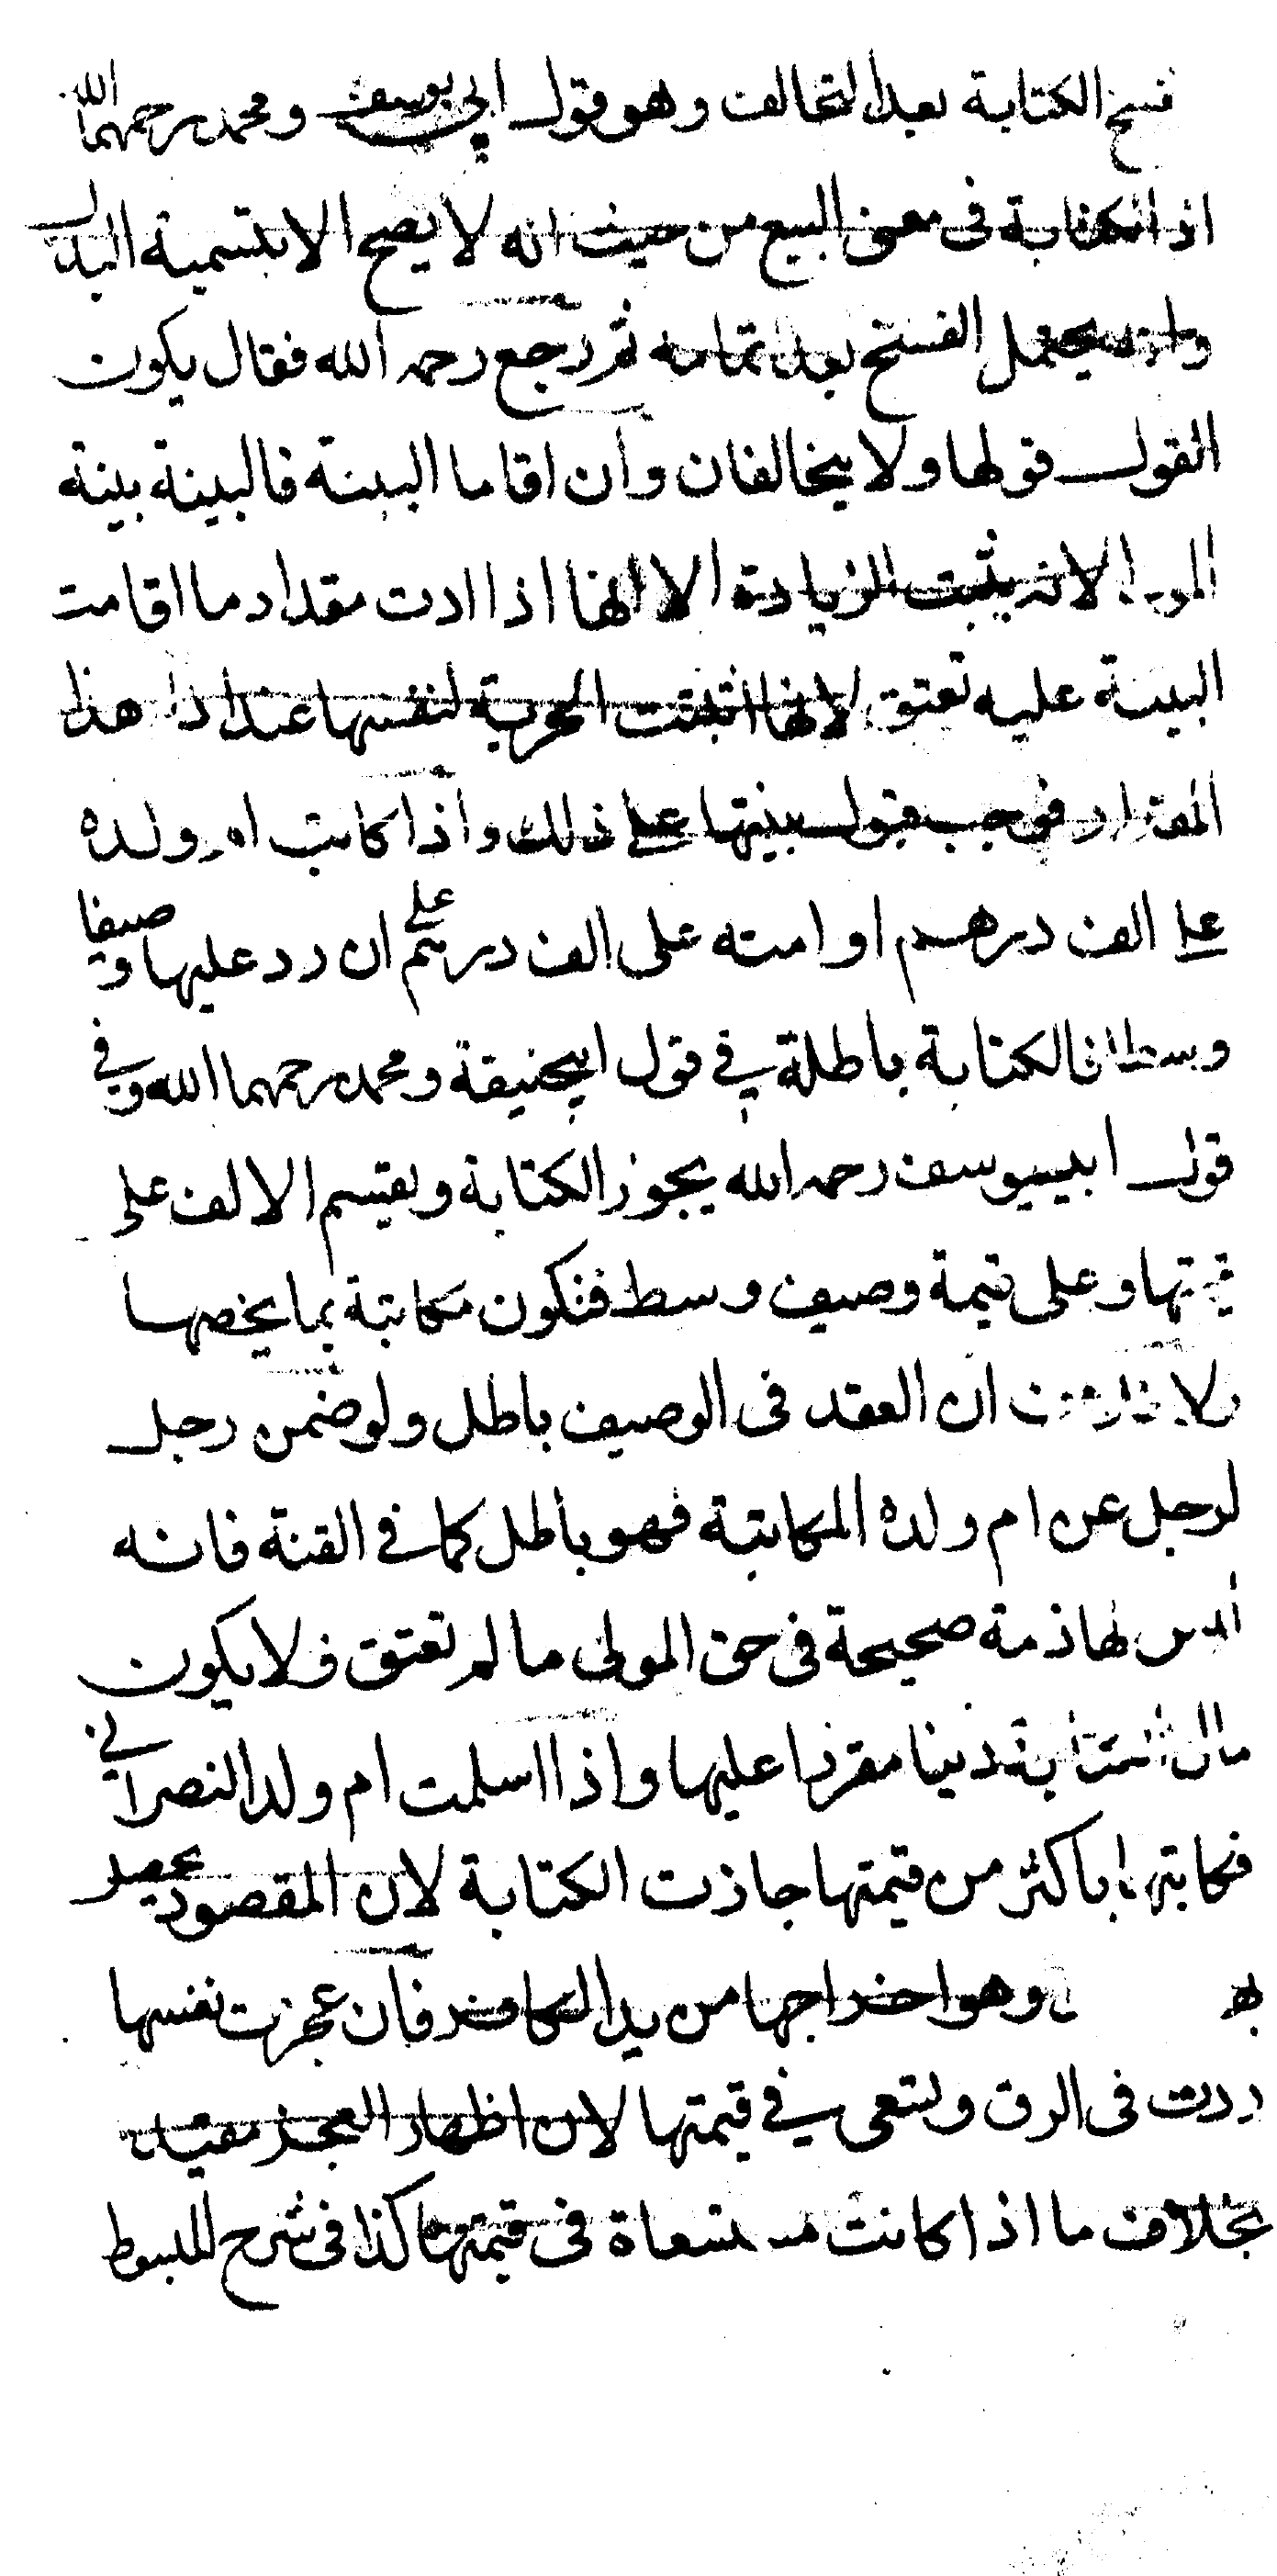 فسخ الكتابة بعد التخالف وهو قول ابي يوسف ومحمد رحمهما الله
اذ الكتابة فى معنى البيع من حيث انه لا يصح الا بتسمية البدل
وانه يحتمل الفسخ بعد تمامه ثم رجع رحمه الله فقال يكون
القول قولها ولا يتخالفان وان اقاما البينة فالبينة بينة
المولى لانه يثبت الزيادة الا انها اذا ادت مقدار ما اقامت
البينة عليه تعتق لانها اثبتت الحرية لنفسها عند اداء هذا
المقدار فوجب قبول بينتها على ذلك واذا كاتب ام ولده
على الف درهم او امته على الف درهم على ان رد عليها وصيفا
وسطا فالكتابة باطلة في قول ابيحنيفة ومحمد رحمهما الله وفي
قول ابييوسف رحمه الله يجوز الكتابة ويقسم الالف على
قيمتها وعلى قيمة وصيف وسط فتكون مكاتبة بما يخصها
ولا ان العقد فى الوصيف باطل ولو ضمن رجل
لرجل عن ام ولده المكاتبة فهو باطل كما في القنة فانه
ليس لها ذمة صحيحة فى حق المولى ما لم تعتق فلا يكون
مال الكتابة دينا مقررا عليها واذا اسلمت ام ولد النصراني
فكاتبها باكثر من قيمتها جازت الكتابة لان المقصود يحصل
به وهو اخراجها من يد الكافر فان عجزت نفسها
ردت فى الرق وتسعى في قيمتها لان اظهار العجز مفيد
بخلاف ما اذا كانت مستسعاة فى قيمتها كذا فى شرح المبسوط